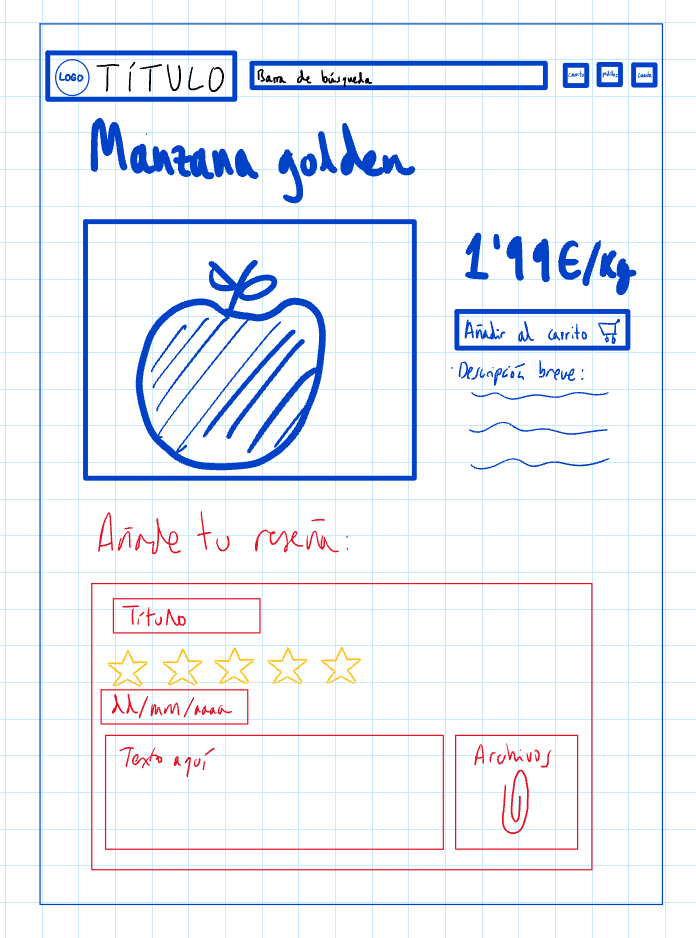 LOGO TÍTULO
Barra de búsqueda
carrito pedidos cuenta
Manzana golden
1'99€/Kg
Añadir al carrito
Descripción breve:
Añade tu reseña:
Título
dd/mm/aaaa
Texto aquí
Archivos